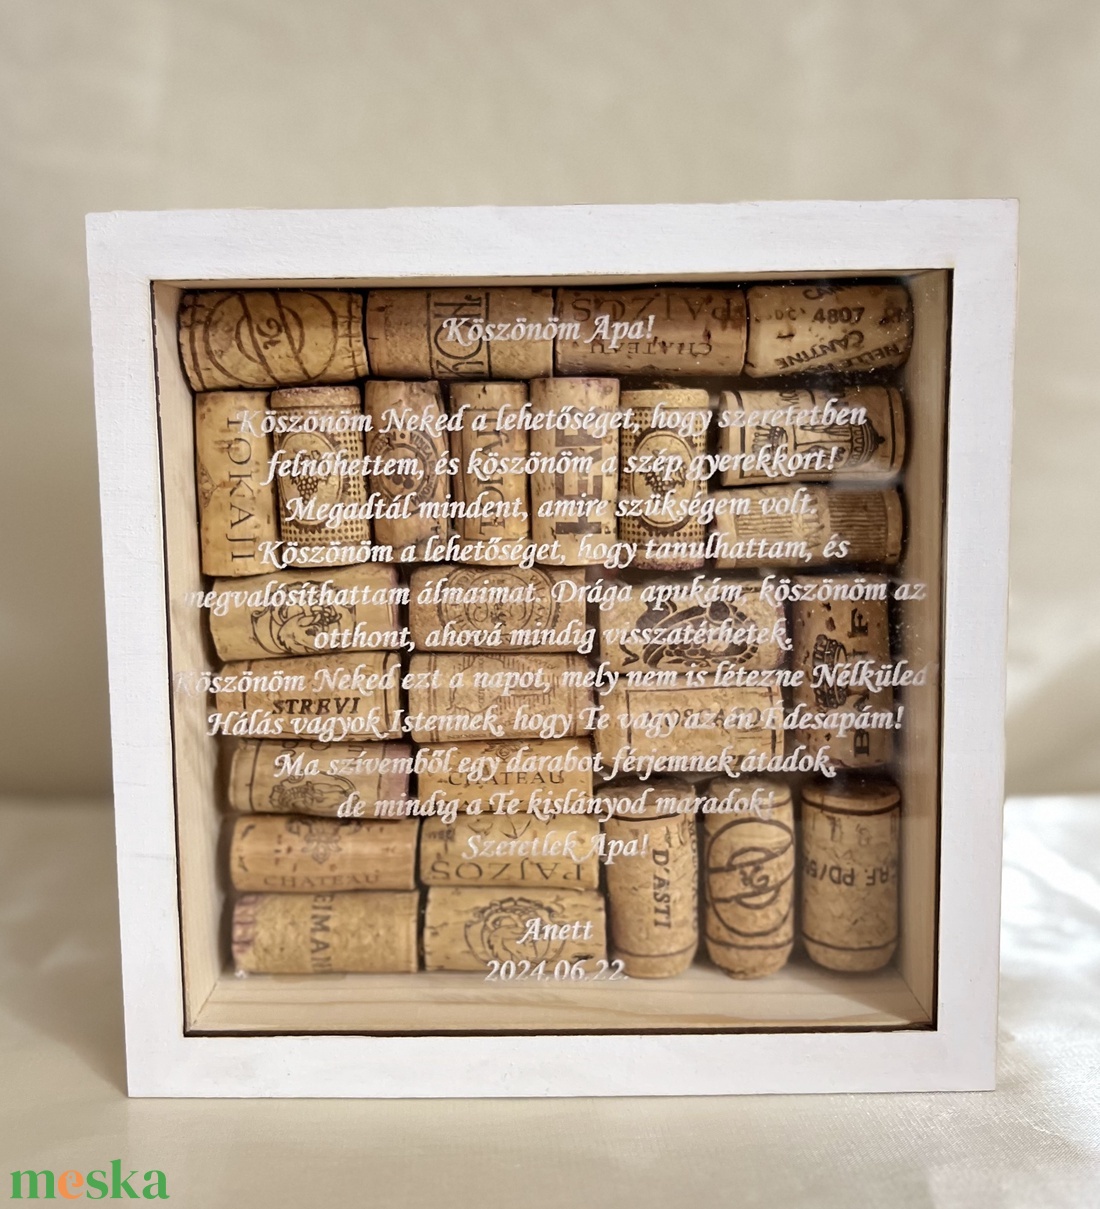 Köszönöm Apa!
Köszönöm Neked a lehetőséget, hogy szeretetben
felnőhettem, és köszönöm a szép gyerekkort!
Megadtál mindent, amire szükségem volt.
Köszönöm a lehetőséget, hogy tanulhattam, és
megvalósíthattam álmaimat. Drága apukám, köszönöm az
otthont, ahová mindig visszatérhetek.
Köszönöm Neked ezt a napot, mely nem is létezne Nélküled
Hálás vagyok Istennek, hogy Te vagy az én Édesapám!
Ma szívemből egy darabot férjemnek átadok,
de mindig a Te kislányod maradok!
Szeretlek Apa!
Anett
2024.06.22.
PAJZOS
CHATEAU
4807
CANTINE
TOKAJI
STREVI
CHATEAU
CHATEAU
PAJZOS
D'ASTI
meska